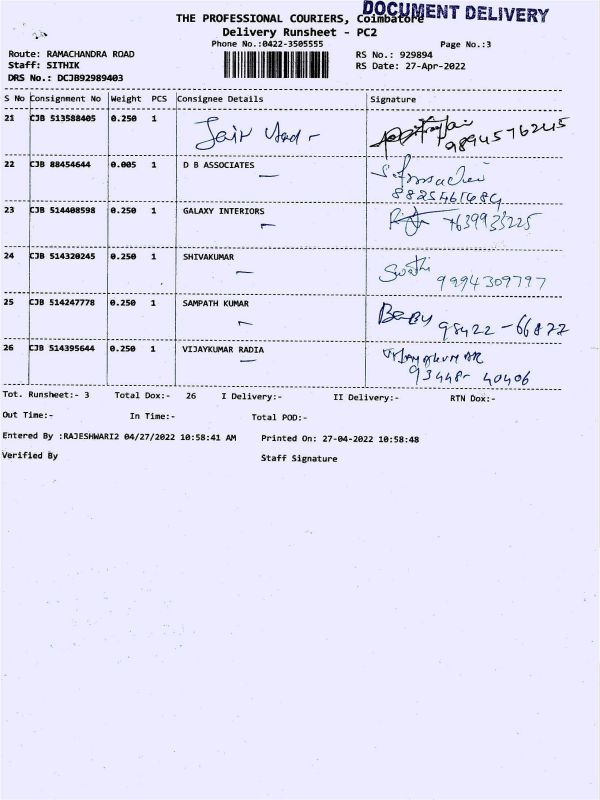 DOCUMENT DELIVERY
THE PROFESSIONAL COURIERS, Coimbatore
Delivery Runsheet - PC2
Phone No.:0422-3505555
Page No.:3
Route: RAMACHANDRA ROAD
RS No.: 929894
Staff: SITHIK
RS Date: 27-Apr-2022
DRS No.: DCJB92989403
S No Consignment No Weight PCS Consignee Details Signature
21 CJB 513588405 0.250 1
22 CJB 88454644 0.005 1 D B ASSOCIATES
23 CJB 514408598 0.250 1 GALAXY INTERIORS
24 CJB 514320245 0.250 1 SHIVAKUMAR Swathi
9994309797
25 CJB 514247778 0.250 1 SAMPATH KUMAR
98422-66877
26 CJB 514395644 0.250 1 VIJAYKUMAR RADIA
93448-40406
Tot. Runsheet:- 3 Total Dox:- 26 I Delivery:- II Delivery:- RTN Dox:-
Out Time:- In Time:- Total POD:-
Entered By :RAJESHWARI2 04/27/2022 10:58:41 AM Printed On: 27-04-2022 10:58:48
Verified By Staff Signature